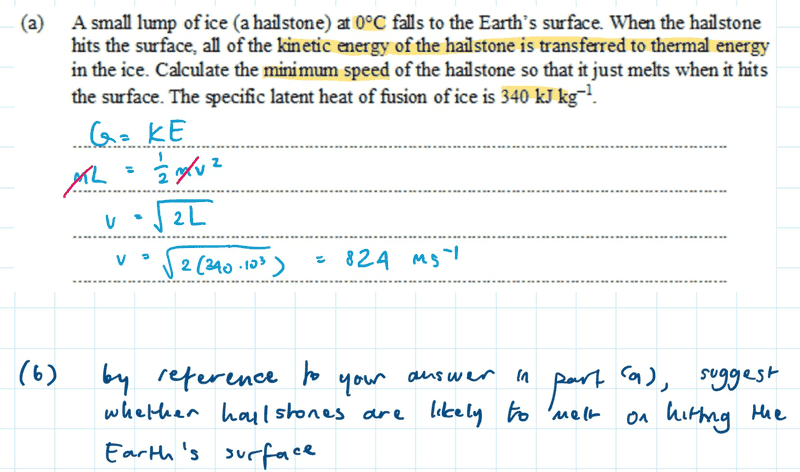 (a) A small lump of ice (a hailstone) at 0°C falls to the Earth's surface. When the hailstone
hits the surface, all of the kinetic energy of the hailstone is transferred to thermal energy
in the ice. Calculate the minimum speed of the hailstone so that it just melts when it hits
the surface. The specific latent heat of fusion of ice is 340 kJ kg⁻¹.
Q = KE
mL = ½ mv²
v = √2L
v = √2(340·10³) = 824 ms⁻¹
(b) by reference to your answer in part (a), suggest
whether hailstones are likely to melt on hitting the
Earth's surface